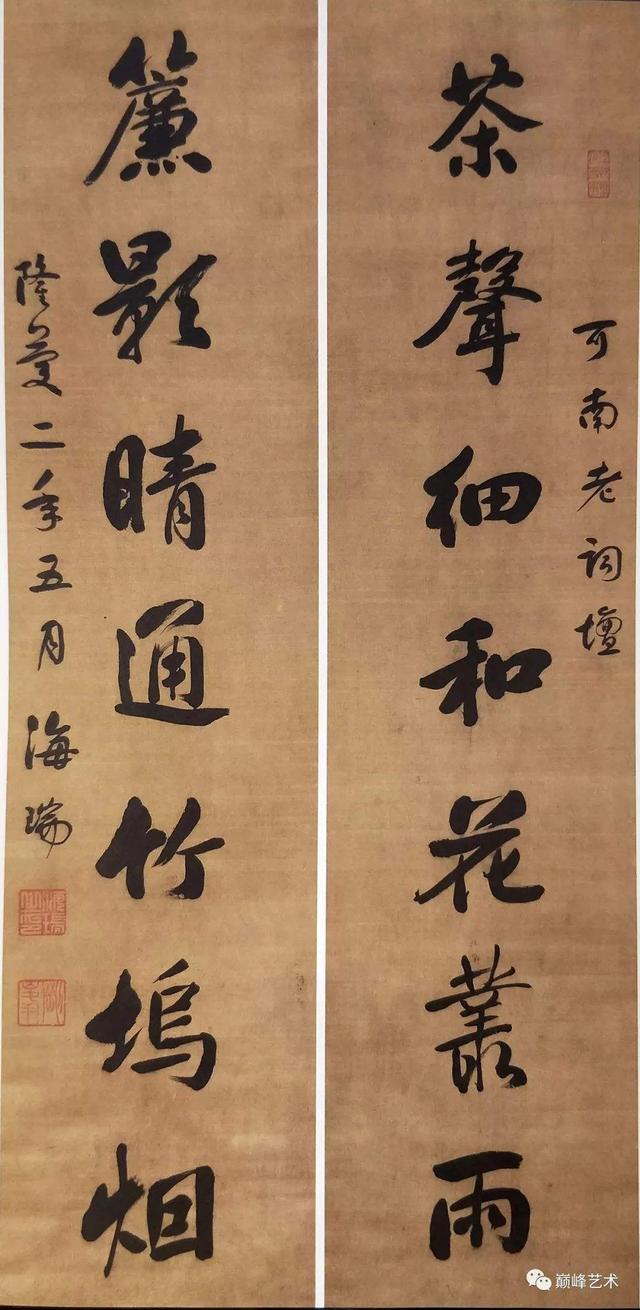 可南老詞壇
茶聲細和花叢雨
簾影晴通竹塢烟
隆慶二年五月海瑞
海瑞之印
剛峯
巅峰艺术